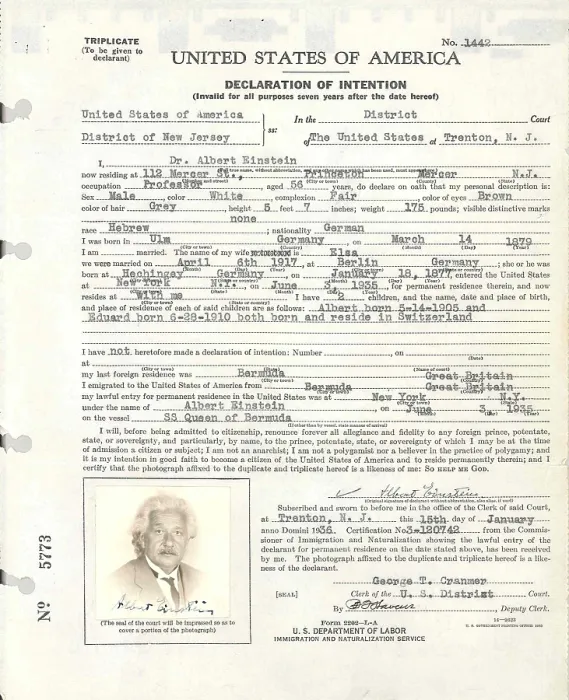 TRIPLICATE
(To be given to
declarant)
No. 1442
UNITED STATES OF AMERICA
DECLARATION OF INTENTION
(Invalid for all purposes seven years after the date hereof)
United States of America
In the District Court
District of New Jersey
ss:
of The United States at Trenton, N. J.
I, Dr. Albert Einstein
now residing at 112 Mercer St., Princeton Mercer N.J.
occupation Professor, aged 56 years, do declare on oath that my personal description is:
Sex Male, color White, complexion Fair, color of eyes Brown
color of hair Grey, height 5 feet 7 inches; weight 175 pounds; visible distinctive marks
none
race Hebrew; nationality German
I was born in Ulm Germany, on March 14 1879
I am married. The name of my wife is Elsa
we were married on April 6th 1917, at Berlin Germany; she or he was
born at Hechingen Germany, on January 18, 1877, entered the United States
at New York N.Y., on June 3, 1935, for permanent residence therein, and now
resides at With me. I have 2 children, and the name, date and place of birth,
and place of residence of each of said children are as follows: Albert born 5-14-1905 and
Eduard born 6-28-1910 both born and reside in Switzerland
I have not heretofore made a declaration of intention: Number, on
at
my last foreign residence was Bermuda Great Britain
I emigrated to the United States of America from Bermuda Great Britain
my lawful entry for permanent residence in the United States was at New York N.Y.
under the name of Albert Einstein, on June 3 1935
on the vessel SS Queen of Bermuda
I will, before being admitted to citizenship, renounce forever all allegiance and fidelity to any foreign prince, potentate,
state, or sovereignty, and particularly, by name, to the prince, potentate, state, or sovereignty of which I may be at the time
of admission a citizen or subject; I am not an anarchist; I am not a polygamist nor a believer in the practice of polygamy; and
it is my intention in good faith to become a citizen of the United States of America and to reside permanently therein; and I
certify that the photograph affixed to the duplicate and triplicate hereof is a likeness of me: SO HELP ME GOD.
Albert Einstein
Subscribed and sworn to before me in the office of the Clerk of said Court,
at Trenton, N. J. this 15th day of January
anno Domini 1936. Certification No 3-120742 from the Commis-
sioner of Immigration and Naturalization showing the lawful entry of the
declarant for permanent residence on the date stated above, has been received
by me. The photograph affixed to the duplicate and triplicate hereof is a like-
ness of the declarant.
George T. Cranmer
[SEAL] Clerk of the U. S. District Court.
By Deputy Clerk.
Form 2202-L-A
U. S. DEPARTMENT OF LABOR
IMMIGRATION AND NATURALIZATION SERVICE
Albert Einstein
(The seal of the court will be impressed so as to
cover a portion of the photograph)
No 5773